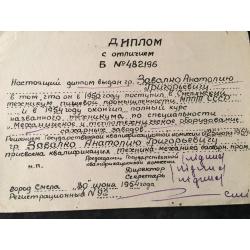 ДИПЛОМ
с отличием
Б №482196
Настоящий диплом выдан гр. Завалко Анатолию
Григорьевичу
в том, что он в 1950 году поступил в Смелянский
техникум пищевой промышленности МППТ СССР
и в 1954 году окончил полный курс
названного техникума по специальности
"Механическое и теплотехническое оборудование
сахарных заводов"
Решением Государственной квалификационной комиссии
гр. Завалко Анатолию Григорьевичу
присвоена квалификация техника-механика
Председатель Государственной
квалификационной комиссии /подпись/
м.п. Директор /подпись/
Секретарь /подпись/
город Смела "30" июня 1954 года
Регистрационный №